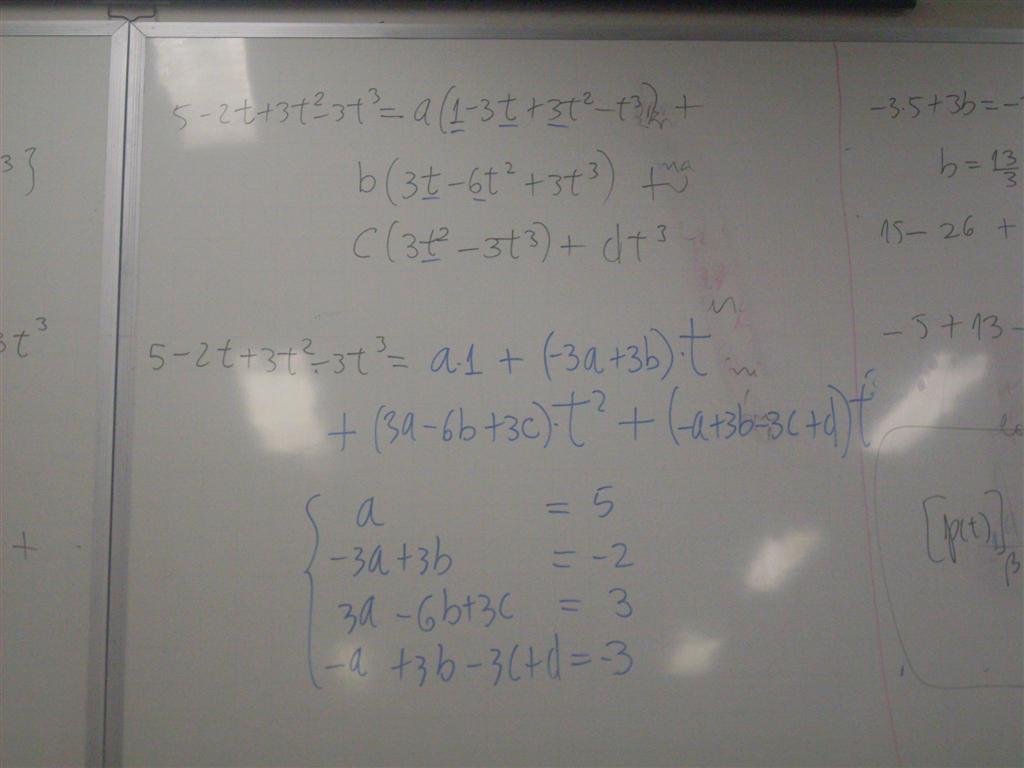 3}
3t³
+
5-2t+3t²-3t³= a(1-3t+3t²-t³) +
b(3t-6t²+3t³) +
C(3t²-3t³)+ dt³
5-2t+3t²-3t³= a·1 + (-3a+3b)·t
+ (3a-6b+3c)·t² + (-a+3b-3c+d)t
a = 5
-3a+3b = -2
3a -6b+3c = 3
-a +3b-3c+d=-3
-3·5+3b=-
b=13/3
15-26 +
-5+13-
[p(t)]β